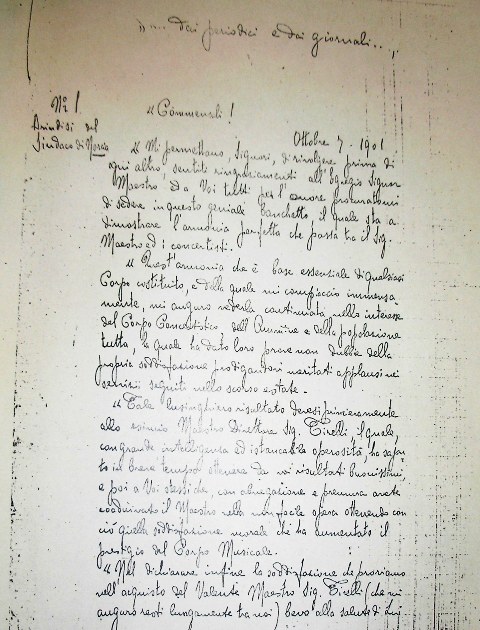 "... dai periodici e dai giornali..,
N° 1
Brindisi del
Sindaco di Norcia
"Commensali!
Ottobre 7 - 1901
"Mi permettano, Signori, di rivolgere prima di
ogni altro, sentiti ringraziamenti all'Egregio Signor
Maestro da Voi tutti per l'onore procuratomi
di sedere in questo geniale banchetto il quale sta a
dimostrare l'armonia perfetta che passa tra il Sig.
Maestro ed i concertisti.
"Quest'armonia che è base essenziale di qualsiasi
Corpo costituito, e della quale mi compiaccio immensa
mente, mi auguro vederla continuata nello interesse
del Corpo Concertistico, dell'Ammine e della popolazione
tutta, la quale ha dato loro prove non dubbie della
propria soddisfazione prodigandoni meritati applausi nei
servizi seguiti nello scorso estate.
"Tale lusinghiero risultato devesi primieramente
allo esimio Maestro Direttore Sig. Tirelli, il quale,
con grande intelligenza ed istancabile operosità, ha sapu
to in breve tempo ottenere da voi risultati buonissimi,
e poi a Voi stessi che, con abnegazione e premura avete
coadiuvato il Maestro nella non facile opera ottenendo con
ciò quella soddisfazione morale che ha aumentato il
prestigio del Corpo Musicale.
"Nel dichiarare infine la soddisfazione che proviamo
nell'acquisto del Valente Maestro Sig. Tirelli (che mi
auguro resti lungamente tra noi) bevo alla salute di